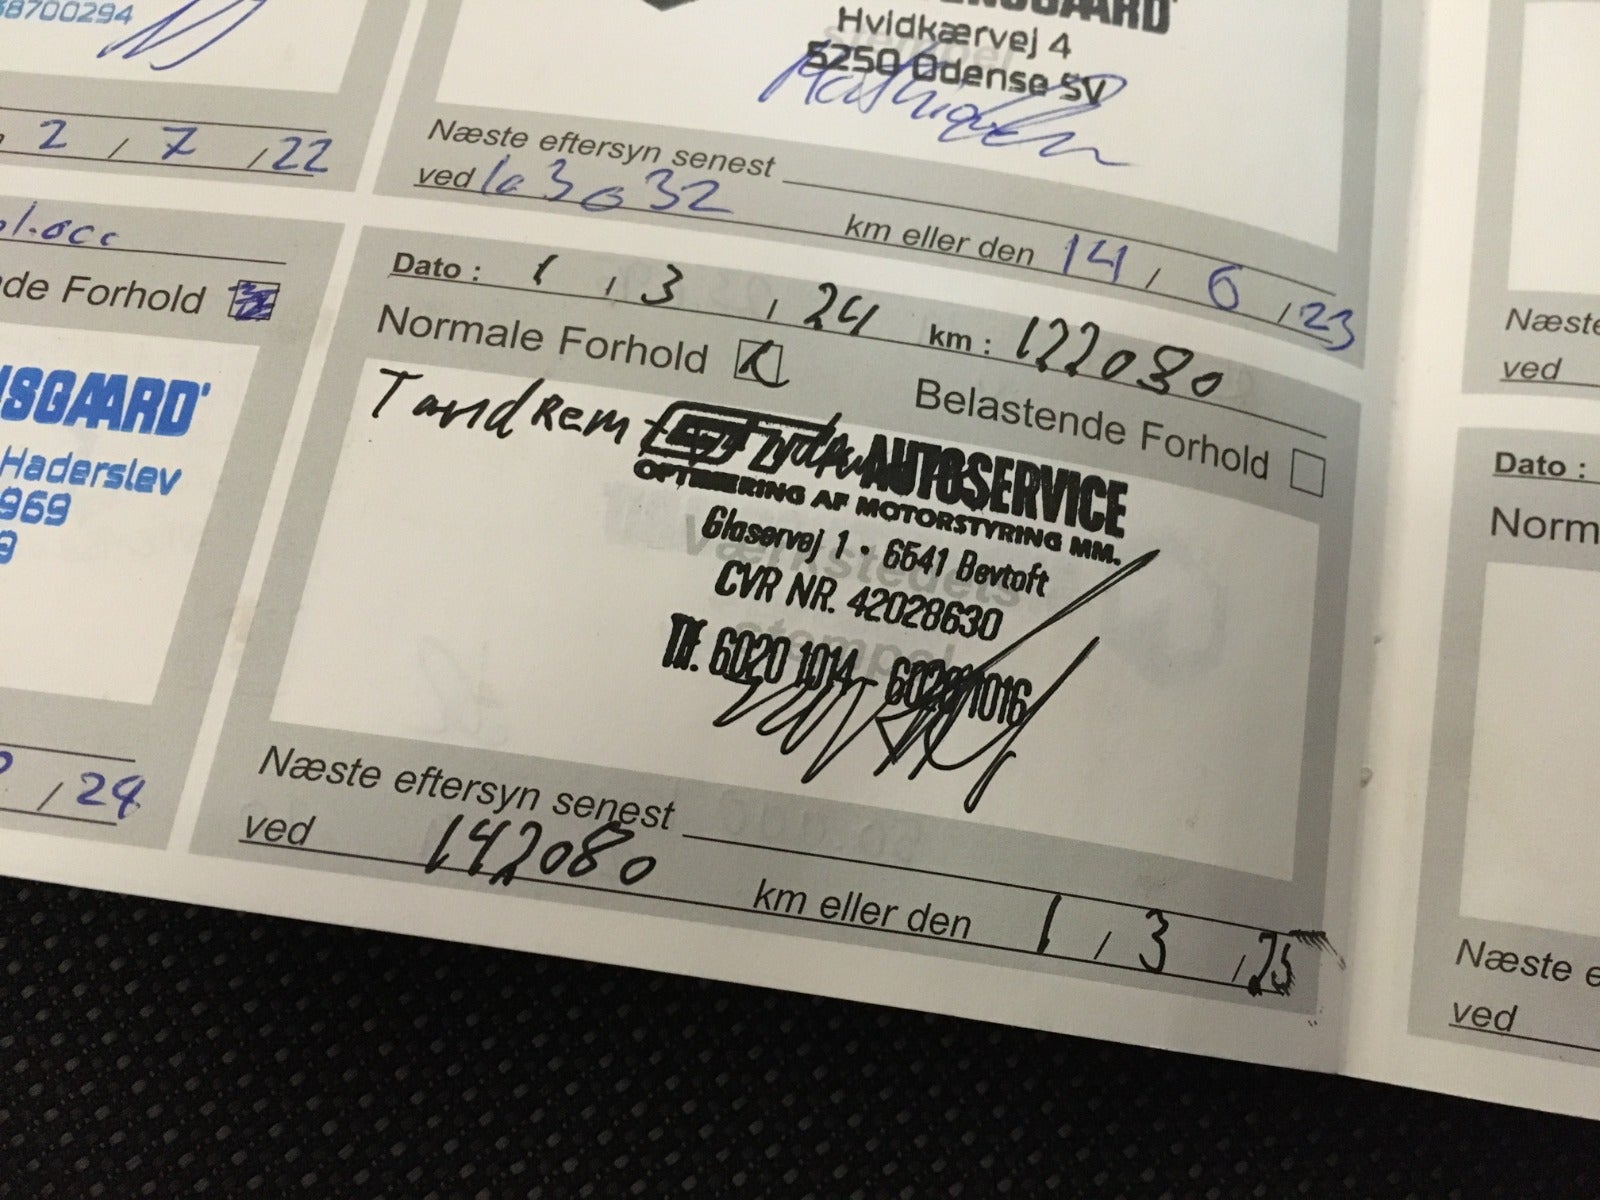 Hvidkærvej 4
5250 Odense SV
Næste eftersyn senest
ved 103032 km eller den 14 / 6 / 23
2 / 7 / 22
de Forhold
NSGAARD
Haderslev
969
9
/ 24
Dato : 1 / 3 / 24 km : 122080
Normale Forhold Belastende Forhold
Tandrem
AUTOSERVICE
OPTIMERING AF MOTORSTYRING MM.
Glaservej 1 · 6541 Bevtoft
CVR NR. 42028630
Tlf. 6020 1014 - 6020 1016
Værkstedets
stempel
Næste eftersyn senest
ved 142080 km eller den 1 / 3 / 25
Næste
ved
Dato :
Norm
Næste e
ved